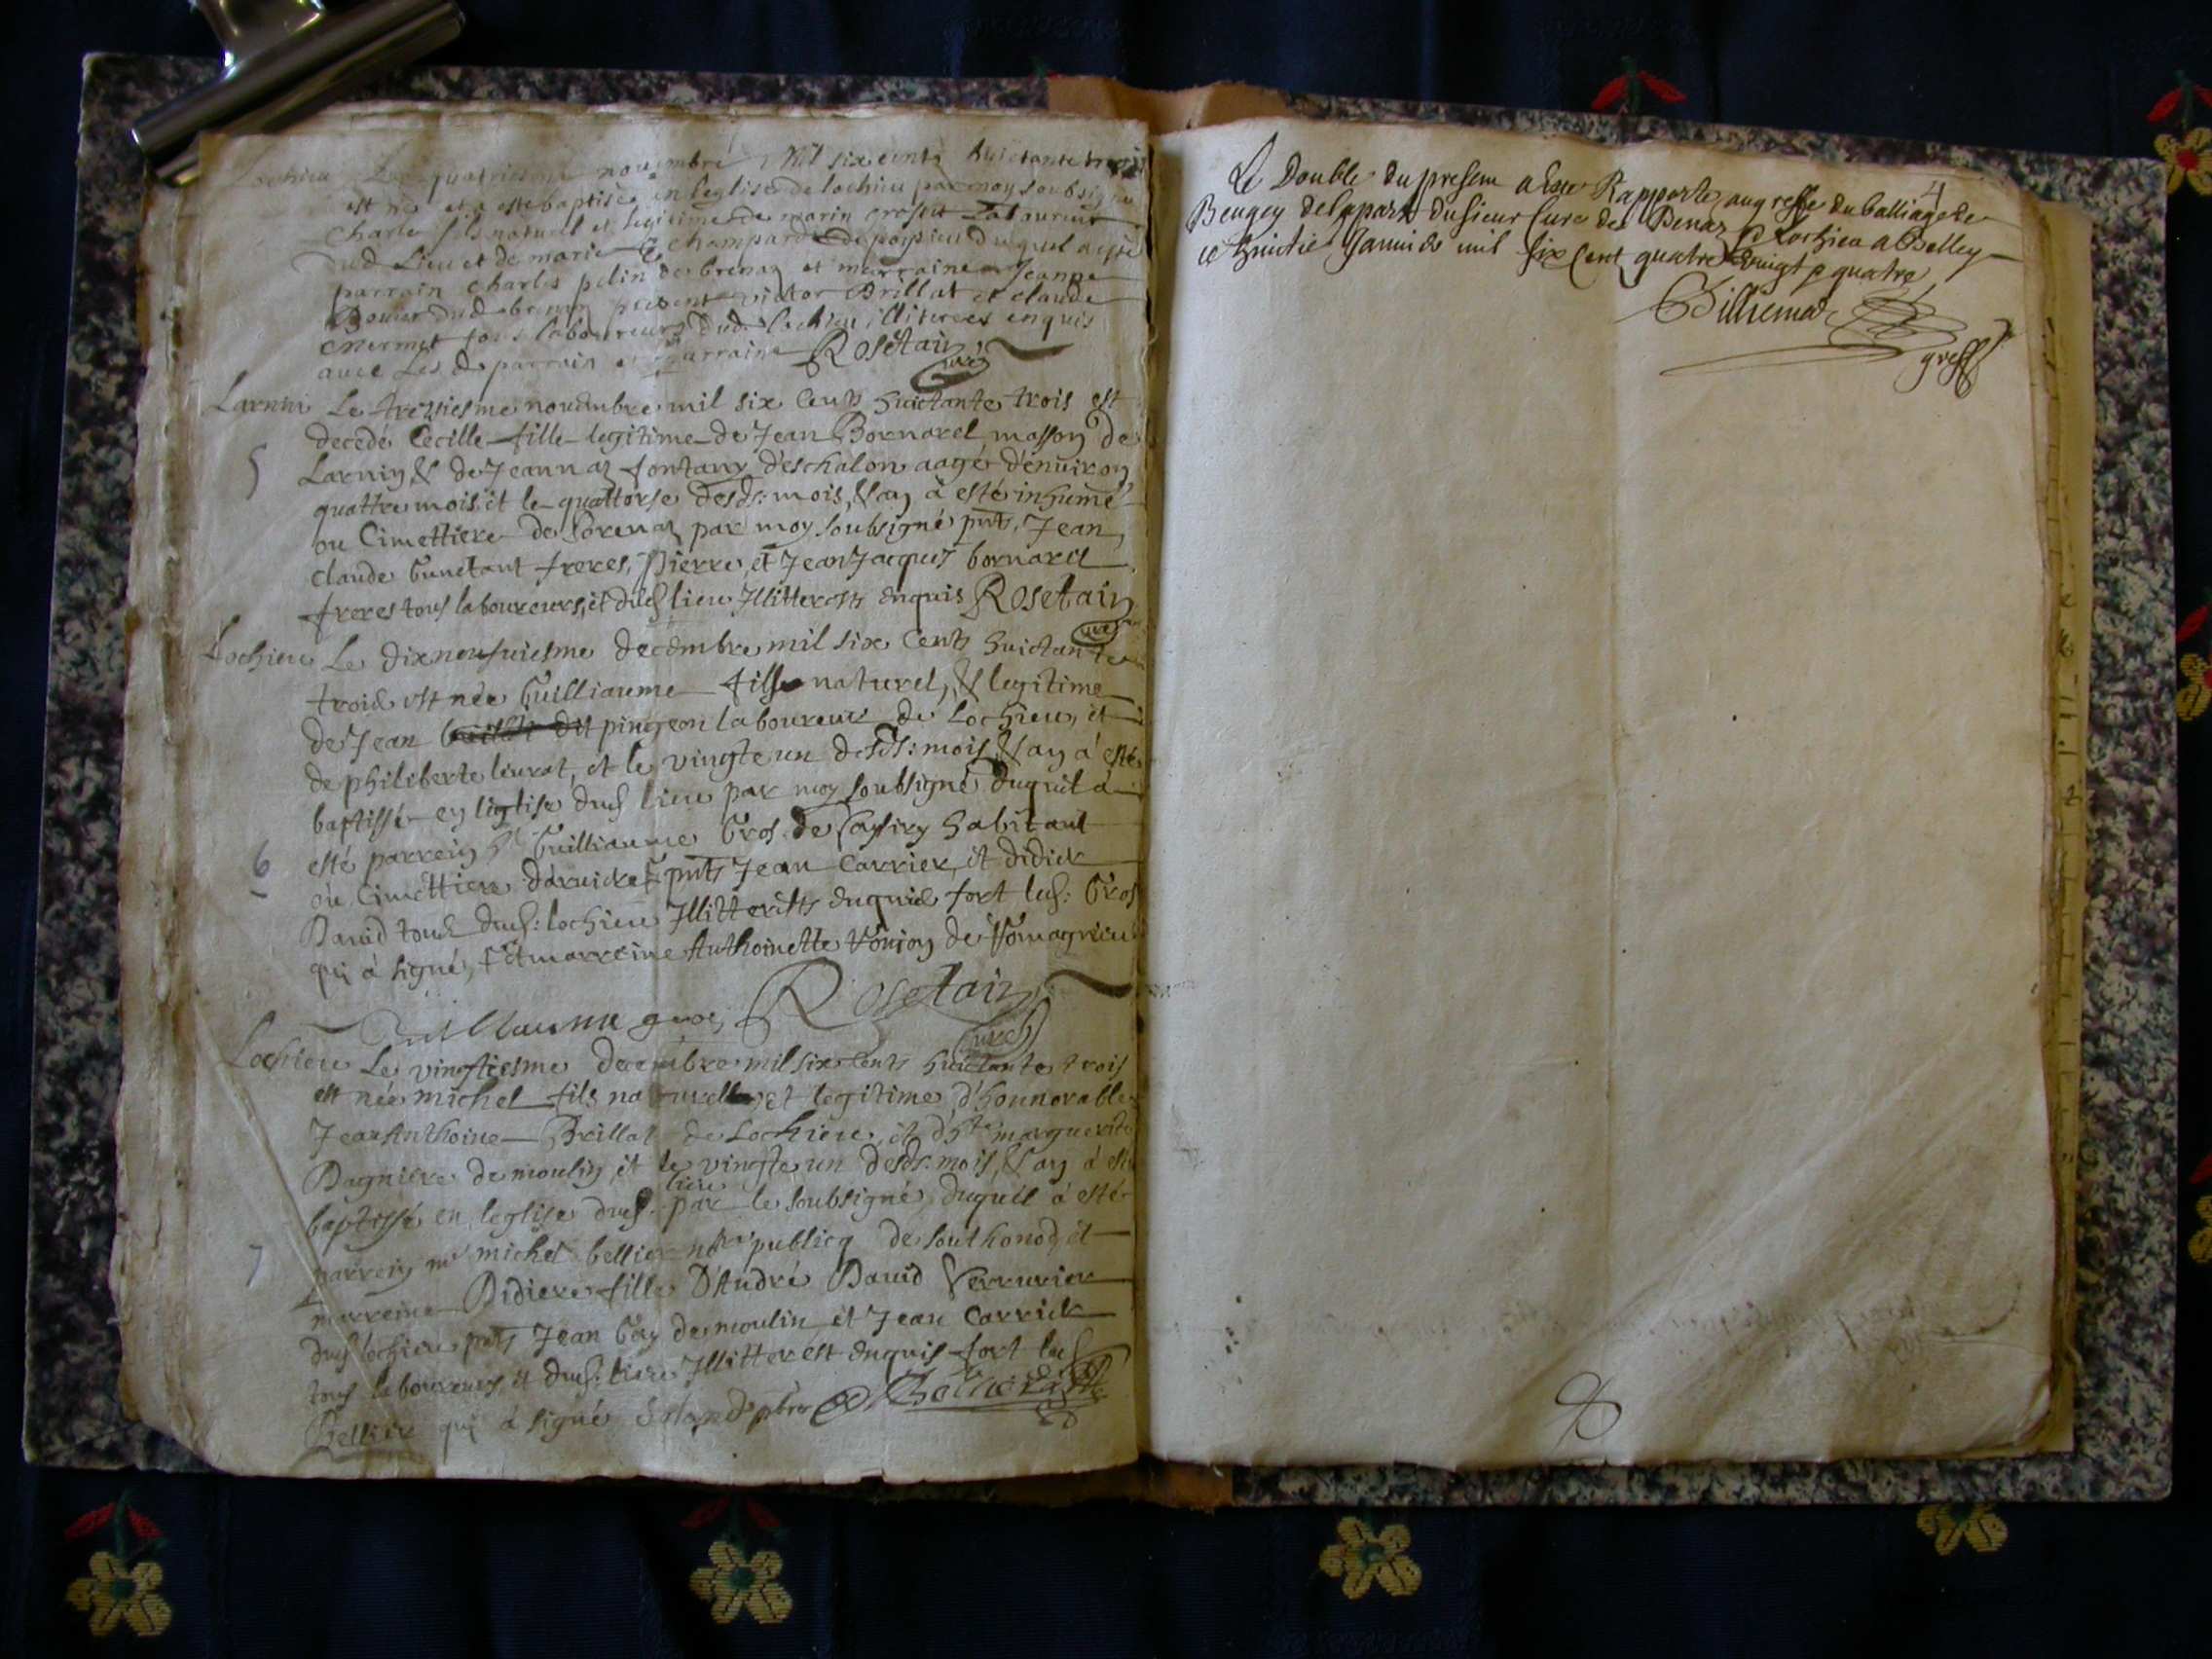 Lochieu Le quatriesme novembre Mil six cents huictante trois
est né et a esté baptisé en leglise de lochieu par moy soubsigne
Charle fils naturel et legitime de marin grossit Laboureur
dud Lieu et de marie champard de poysieu duquel a esté
parrain charles pelin de brenaz et marraine Jeanne
Bouer dud brenaz present victor Brillat et claude
mermet tous laboureurs dud. lochieu illiterees enquis
avec Les d. parrain et marraine Rosetain
curé
Larnin Le treziesme novembre mil six Cents huictante trois est
decedé Cecille fille legitime de Jean Bornarel masson de
5 Larnin & de Jeannaz fontany d'eschalon aagé d'environ
quattre mois, et le quattorse desds: mois, & an à esté inhumé
au Cimettiere de brenaz par moy soubsigné pnts. Jean
claude Gunetant freres, pierre, et Jean Jacques bornarel
freres tous laboureurs, et dud lieu Illitterets enquis Rosetain
curé
Lochieu Le dixneufviesme decembre mil six Cents huictante
trois est née Guilliaume fils naturel, & legitime
de Jean pingeon laboureur de Lochieu, et
de philiberte livrat, et le vingte un desds: mois, & an à esté
baptissé en leglise dud lieu par moy soubsigné duquel à
6 esté parrein Guilliaume Gros de habitant
ou Cimettiere d'arviere pnts Jean Carrier, et didier
David tous dud: lochieu Illitterets enquis fort led: Gros
qui à signé, et marreine Anthoinette
Rosetain
Guillaume gros curé
Lochieu Le vingtiesme decembre mil six Cents huictante trois
est née michel fils naturel et legitime d'honnorable
Jean Anthoine Brillat de Lochieu, et d'hte marguerite
Dagniere de moulin, et le vingte un desds: mois, & an à esté
baptissé en leglise dud. lieu par le soubsigné, duquel à esté
7 parrein mr michel bellier nore publicq de southonod, et
marreine Didiere fille D'André David serrurier
dud lochieu pnts Jean Gay de moulin, et Jean Carrier
tous laboureurs, et dud: lieu Illitterest enquis fort led
Bellier qui à signé
4
Le Double du present a esté Rapporté au greffe du balliage de
Beugey de la part du sieur Curé de Brenaz & Lochieu a Belley
ce huictie Janvier mil six Cent quatre vingt & quatre
greff